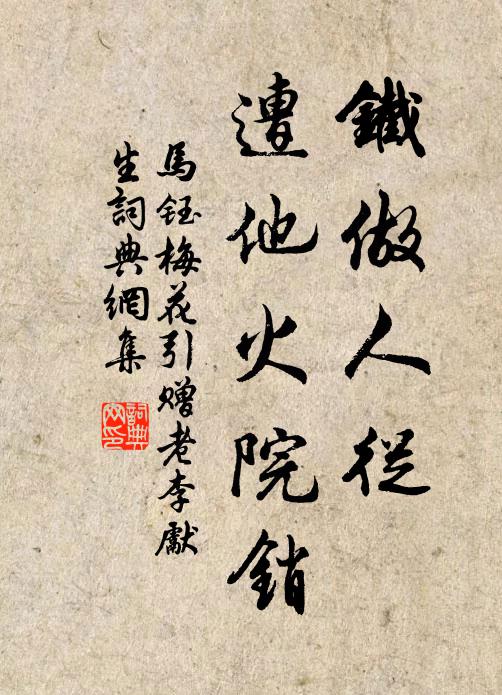 鐵做人從
遭他火院銷
馬鈺梅花引贈老李獻
生詞典網集
詞典网印